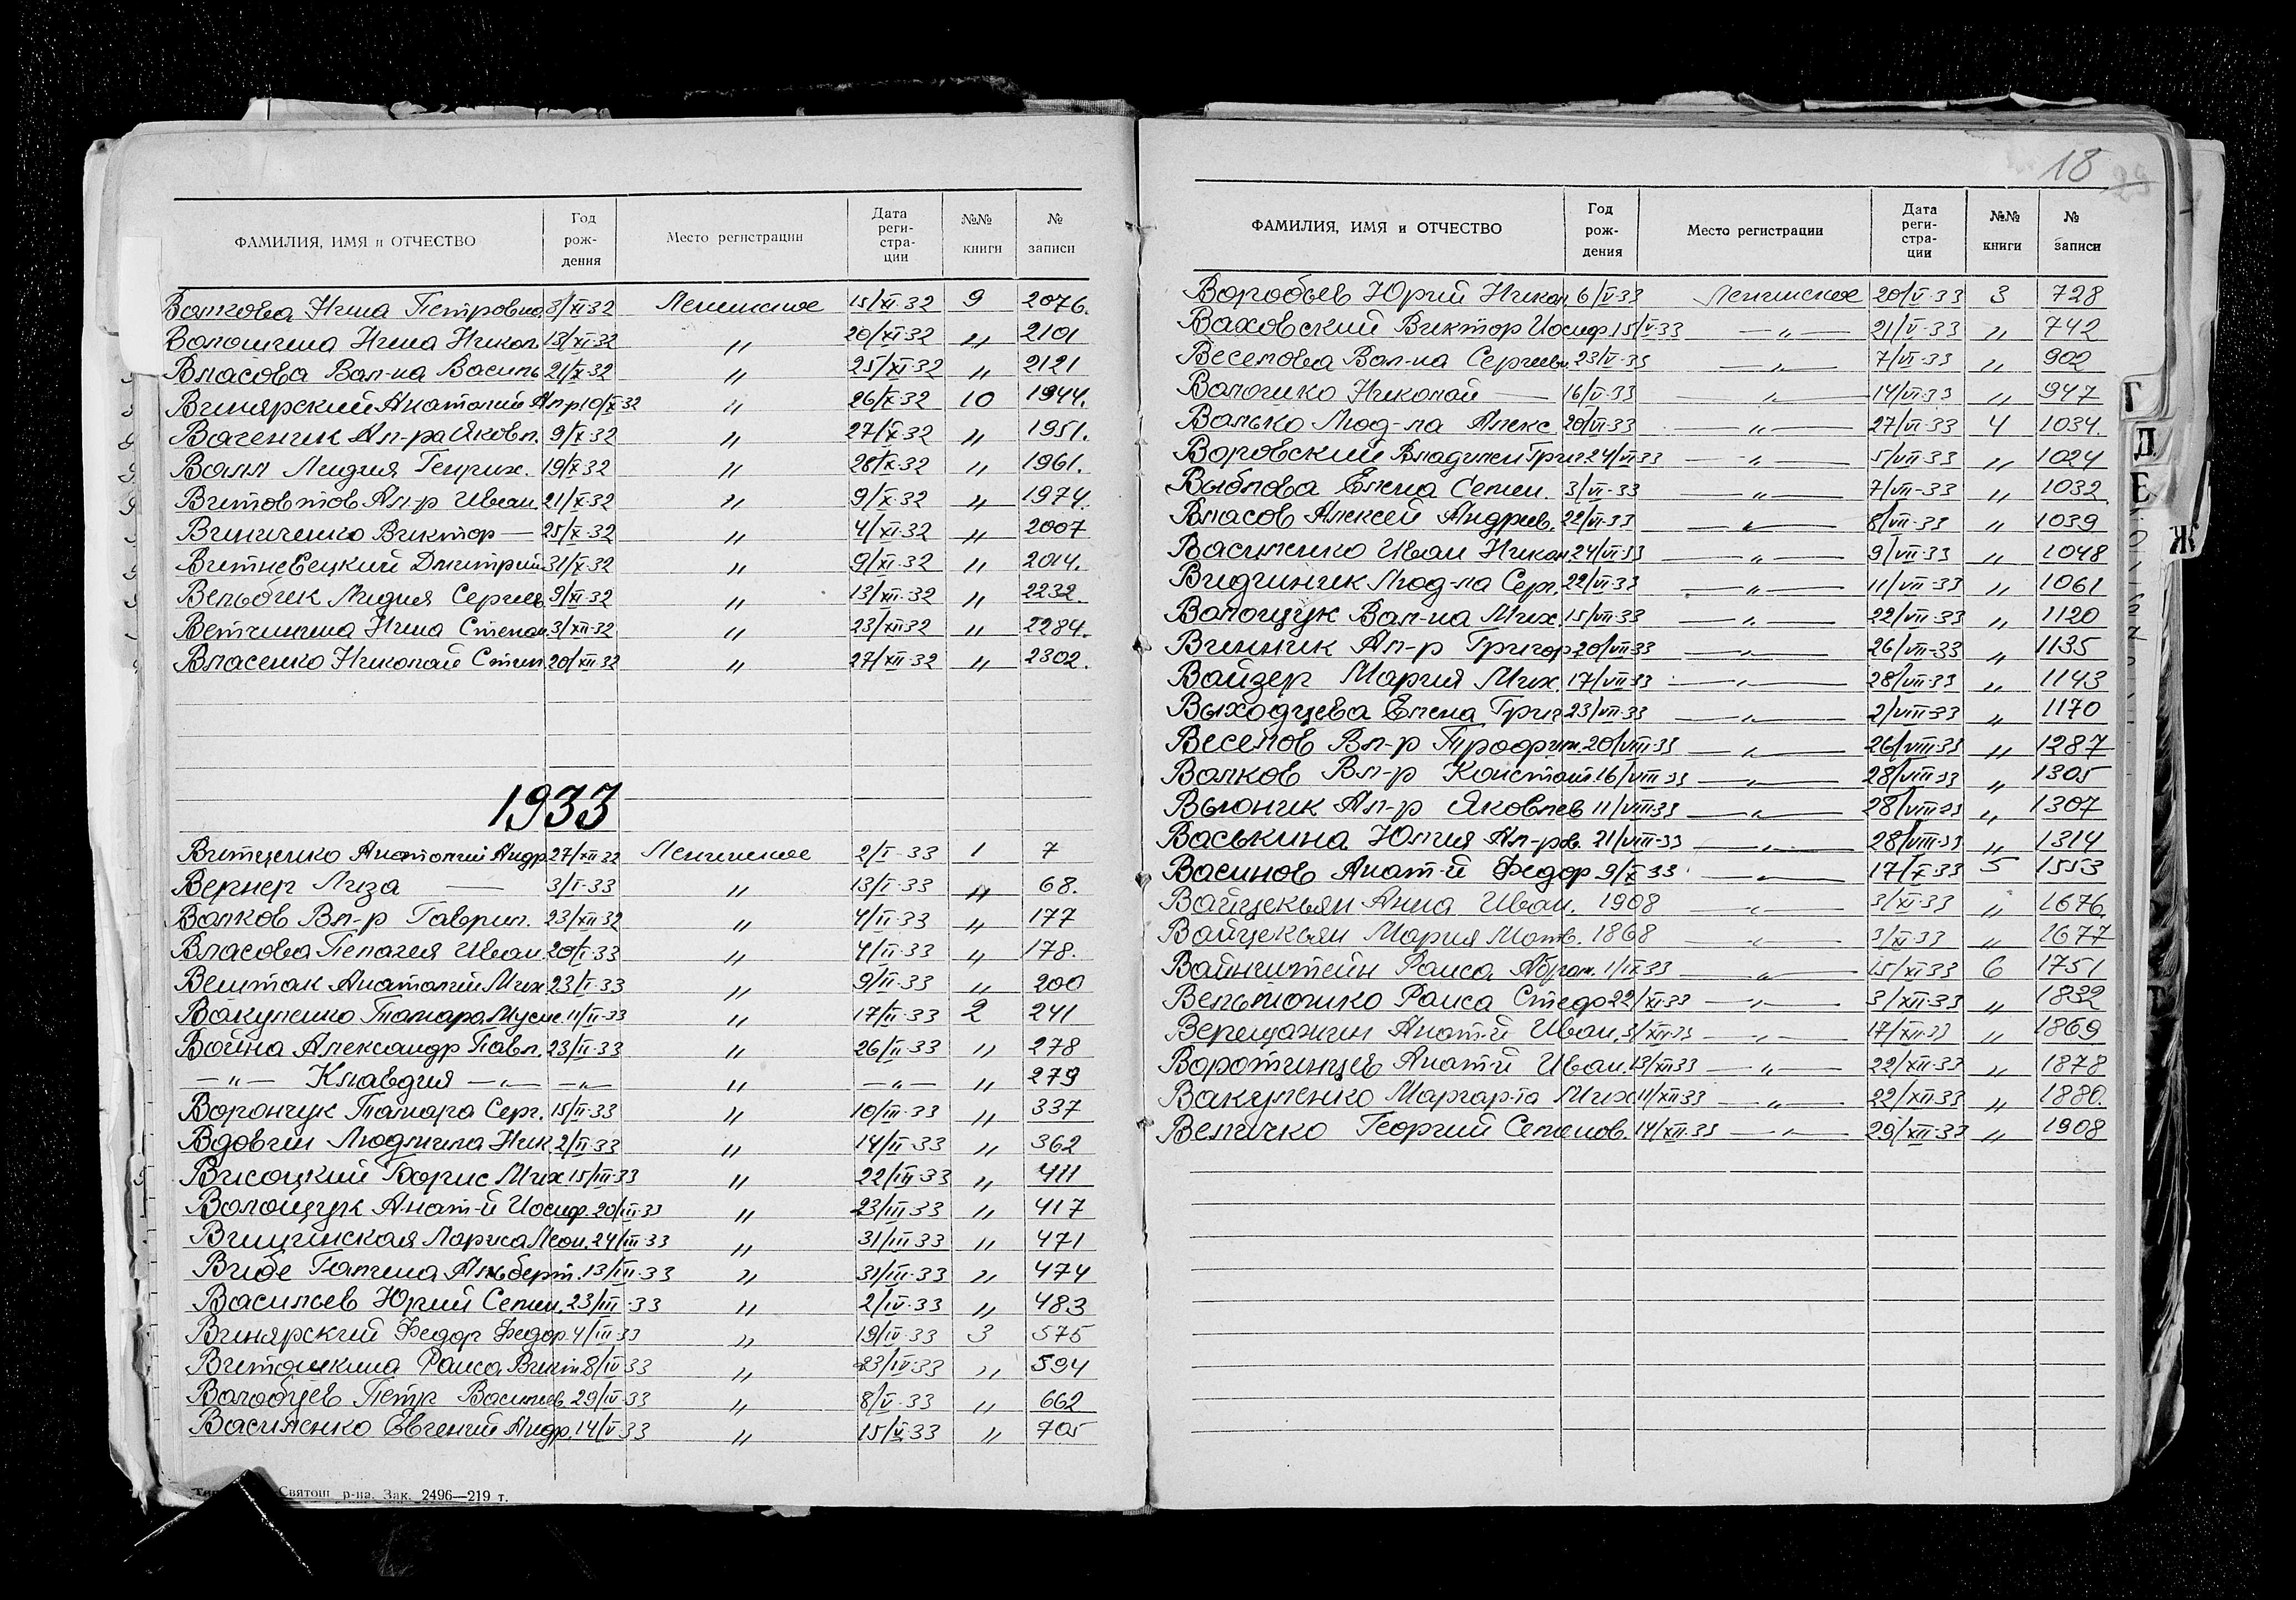 ФАМИЛИЯ, ИМЯ и ОТЧЕСТВО Год рождения Место регистрации Дата регистрации №№ книги № записи
Волкова Нина Петровна 3/XI-32 Ленинское 15/XI-32 9 2076.
Волошина Нина Никол. 13/XI-32 " 20/XI-32 " 2101
Власова Вал-на Василь 21/X-32 " 25/XI-32 " 2121
Винярский Анатолий Ал-р 10/X-32 " 26/X-32 10 1944.
Ваченик Ал-ра Яковл. 9/X-32 " 27/X-32 " 1951.
Валл Лидия Генрих. 19/X-32 " 28/X-32 " 1961.
Витовтов Ал-р Иван. 21/X-32 " 9/X-32 " 1974.
Виниченко Виктор — 25/X-32 " 4/XI-32 " 2007
Витневецкий Дмитрий 31/X-32 " 9/XI-32 " 2014.
Вельбик Лидия Сергеев 9/XI-32 " 13/XII-32 " 2232.
Ветчинина Нина Степан. 3/XII-32 " 23/XII32 " 2284.
Власенко Николай Степ 20/XII-32 " 27/XII-32 " 2302.
1933
Витценко Анатолий Андр 27/XII-32 Ленинское 2/I-33 1 7
Вернер Лиза — 3/I-33 " 13/I-33 " 68.
Волков Вл-р Гаврил. 23/XII-32 " 4/II-33 " 177
Власова Пелагея Иван. 20/I-33 " 4/II-33 " 178.
Вештак Анатолий Мих 23/I-33 " 9/II-33 " 200
Вакуленко Тамара Мусие. 11/II-33 " 17/II-33 2 241
Война Александр Павл. 23/II-33 " 26/II-33 " 278
—"— Клавдия —"— —"— " —"— " 279
Ворончук Тамара Серг. 15/II-33 " 10/III-33 " 337
Вдовин Людмила Ник. 2/II-33 " 14/II-33 " 362
Висоцкий Борис Мих 15/III-33 " 22/III-33 " 411
Волощук Анат-й Иосиф. 20/III-33 " 23/III-33 " 417
Вишинская Лариса Леон. 24/III-33 " 31/III-33 " 471
Виде Галина Альберт. 13/III-33 " 31/III-33 " 474
Васильев Юрий Семен. 23/III-33 " 2/IV-33 " 483
Винярский Федор Федор. 4/III-33 " 19/IV-33 3 575
Витошкина Раиса Викт. 8/IV-33 " 23/IV-33 " 594
Володцев Петр Васильев. 29/IV-33 " 8/V-33 " 662
Василенко Евгений Андр. 14/V-33 " 15/V-33 " 705
Святош. р-на. Зак. 2496—219 т.
18
ФАМИЛИЯ, ИМЯ и ОТЧЕСТВО Год рождения Место регистрации Дата регистрации №№ книги № записи
Воробьев Юрий Никол 6/V-33 Ленинское 20/V-33 3 728
Ваховский Виктор Иосиф. 15/V-33 —"— 21/V-33 " 742
Веселова Вал-на Сергеевн. 23/V-33 —"— 7/VI-33 " 902
Волошко Николай — 16/V-33 —"— 14/VI-33 " 947
Валько Люд-ла Алекс 20/VI-33 —"— 27/VI-33 4 1034.
Воровский Владимир Григ 24/VI-33 —"— 5/VII-33 " 1024
Выблова Елена Семен. 3/VI-33 —"— 7/VII-33 " 1032
Власов Алексей Андреев. 22/VI-33 —"— 8/VII-33 " 1039
Василенко Иван Никол. 24/VI-33 —"— 9/VII-33 " 1048
Видиник Люд-ла Серг. 22/VI-33 —"— 11/VII-33 " 1061
Волощук Вал-на Мих. 15/VII-33 —"— 22/VII-33 " 1120
Винник Ал-р Григор 20/VII-33 —"— 26/VII-33 " 1135
Вайзер Мария Мих. 17/VII-33 —"— 28/VII-33 " 1143
Выходцева Елена Григ 23/VII-33 —"— 2/VIII-33 " 1170
Веселов Вл-р Трофим. 20/VIII-33 —"— 26/VIII-33 " 1287
Волков Вл-р Констант 16/VIII-33 —"— 28/VIII-33 " 1305
Вьюник Ал-р Яковлев 11/VIII33 —"— 28/VIII-33 " 1307
Васькина Юлия Ал-ров. 21/VIII-33 —"— 28/VIII-33 " 1314
Васинов Анат-й Федор 9/X-33 —"— 17/X-33 5 1553
Вайцекьян Анна Иван. 1908 —"— 3/XI-33 " 1676.
Вайцекьян Мария Матв. 1868 —"— 3/XI-33 " 1677
Вайнштейн Раиса Абрам. 1/IX33 —"— 15/XI-33 6 1751
Вельможко Раиса Стедо 22/XI-33 —"— 3/XII-33 " 1832
Верещагин Анат-й Иван. 3/XII-33 —"— 17/XII-33 " 1869
Воротинцев Анат-й Иван. 13/XII33 —"— 22/XII-33 " 1878
Вакуленко Маргар-та Мих 11/XII33 —"— 22/XII33 " 1880.
Величко Георгий Семенов. 14/XII-33 —"— 29/XII-33 " 1908
Г
Д
Е
Ж